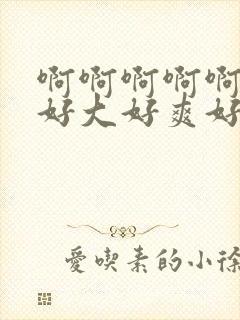 啊啊啊啊啊
好大好爽好
愛喫素的小徐